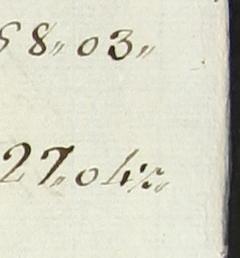 58,, 03,,
27,, 04½,,